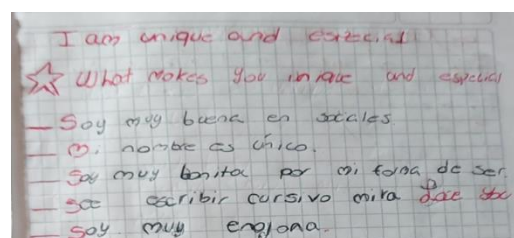 I am unique and
What makes you and especial
- Soy muy buena en sociales
- mi nombre es único.
- Soy muy bonita por mi forma de ser.
- escribir cursivo mira
- Soy muy enojona.